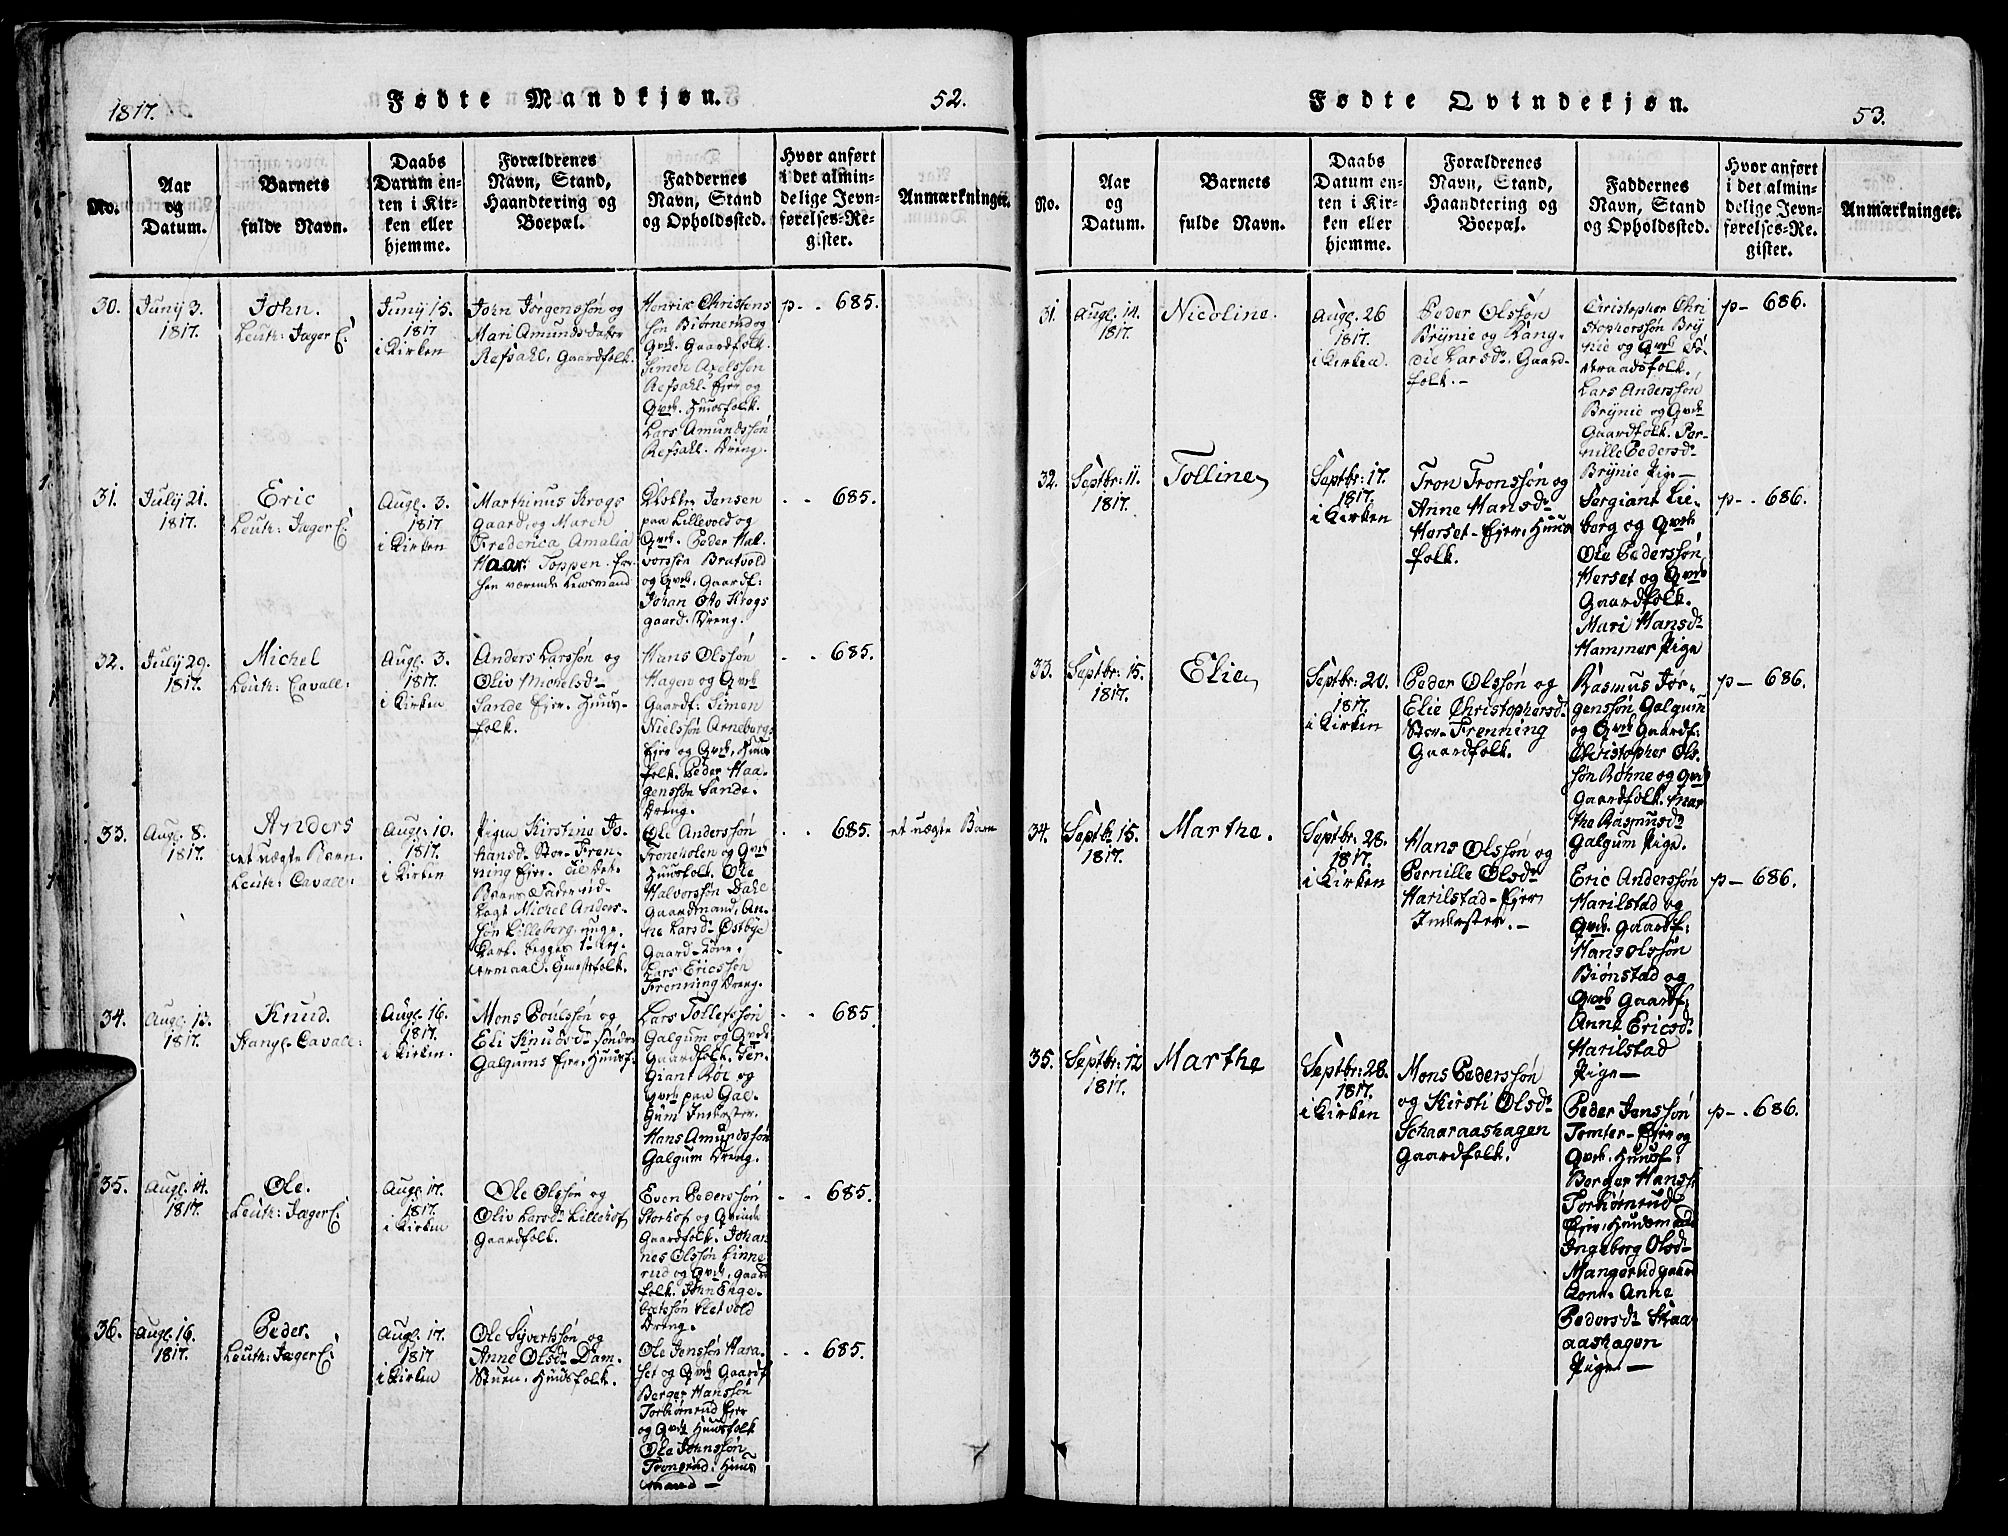 1817.
Fødte Mandkjøn.
52.
No.
Aar
og
Datum.
Barnets
fulde Navn.
Daabs
Datum en-
ten i Kir-
ken eller
hjemme.
Forældrenes
Navn, Stand,
Haandtering og
Boepæl.
Faddernes
Navn, Stand
og Opholdssted.
Hvor anført
i det almin-
delige Jevn-
førelses-Re-
gister.
Anmærkninger.
30.
Junÿ 3.
1817.
John.
Leuth: Jager C:
Junÿ 15.
1817
i Kirken
John Jørgenssøn og
Mari Amundsdatter
Refsahl, Gaardfolk.
Henric Christens
søn Biørnerud og
Qvd. Gaardfolk.
Simen Axelssøn
Refsahl-Ejer og
Qvd. Huusfolk.
Lars Amundssøn
Refsahl. Dreng.
p- . 685.
31.
Julÿ 21.
1817.
Eric
Leuth: Jager C:
Augl. 3.
1817
i Kirken
Marthinus Krogs
gaard, og Maren
Frederica Amalia
Haar. Toppen. for-
hen værende Lensmand
Klokker Jensen
paa Lillevold og
Qvd. Peder Hal-
vorssøn Bratvold
og Qvd. Gaardf:
Johan Oto Krogs
gaard. Dreng.
. . 685.
32.
Julÿ 29.
1817.
Michel
Leuth: Cavall:
Augl. 3.
1817.
i Kirken
Anders Larssøn og
Oliv Michelsd.
Sande Ejer. Huus-
folk.
Hans Olssøn
Hagen og Qvd.
Gaardf: Simen
Nielssøn Arneberg
Ejer og Qvd. Huus
folk. Peder Haa-
genssøn Sande.
Dreng.
. . 685.
33.
Augl. 8.
1817.
Anders
et uægte Barn.
Leuth: Cavall:
Augl. 10.
1817.
i Kirken
Pigen Kirstine Jo-
hansd. Stor-Fren-
ning Ejer. Til det
Barns Fader ud-
lagt Michel Anders-
søn Lilleberg, unge-
Karl. begges 1ste Lej-
ermaal.
Ole Anderssøn
Troneholen og Qvd.
Huusfolk. Ole
Halvorssøn Dahl
Gaardmand, An-
ne Larsd. Østbye
Gaard-Kone.
Lars Ericssøn
Frenning Dreng.
. . 685.
et uægte Barn
34.
Augl. 13.
1817.
Knud.
Stangl. Cavall:
Augl. 16.
1817.
i Kirken.
Mons Poulssøn og
Eli Knudsd. søndre
Galgums Ejer, Huusf.
Lars Tollefssøn
Galgum og Qvd.
Gaardfolk. Ser-
giant Røe og
Qvd. paa Gal-
gum Inderster.
Hans Amundssøn
Galgum Dreng.
. . 685.
35.
Augl. 14.
1817.
Ole.
Leuth: Jager C:
Augl. 17.
1817.
i Kirken
Ole Olssøn og
Oliv Larsd. Lillehof
Gaardfolk.
Even Pederssøn
Storhof og Qvinde
Gaardfolk. Johan
nes Olssøn Linne
rud og Qvd. gaard
folk. John Enge-
bretssøn Sletvold
Dreng.
. . 685.
36.
Augl. 16.
1817.
Peder.
Leuth: Jager C:
Augl. 17.
1817
i Kirken
Ole Syvertssøn og
Anne Olsd. Dam-
stuen. Huusfolk.
Ole Jenssøn Hara-
set og Qvd. Gaardf
Berger Hanssøn
Torbiørnrud Ejer
og Qvd. Huusfolk
Ole Johnssøn
Tronsrud. Huus
mand —
. . 685.
Fødte Qvindekjøn.
53.
No.
Aar
og
Datum.
Barnets
fulde Navn.
Daabs
Datum en-
ten i Kir-
ken eller
hjemme.
Forældrenes
Navn, Stand,
Haandtering og
Boepæl.
Faddernes
Navn, Stand
og Opholdssted.
Hvor anført
i det almin-
delige Jevn-
førelses-Re-
gister.
Anmærkninger.
31.
Augl. 14.
1817.
Nicoline.
Augl. 26
1817.
i Kirken.
Peder Olssøn
Brÿnie og Rang-
die Larsd. Gaard-
folk. -
Christopher Chri
stopherssøn Brÿ
nie og Qvd.
Lars Anderssøn
Brÿnie og Qvd.
Gaardfolk. Per-
nille Pedersd.
Brÿnie Pige —
p — 686.
32.
Septbr: 11.
1817.
Tolline
Septbr: 17.
1817.
i Kirken
Tron Tronssøn og
Anne Hansd.
Herset-Ejer, Huus
folk.
Sergiant Lie-
berg og Qvd.
Ole Pederssøn
Herset og Qvd.
Gaardfolk.
Mari Hansd.
Hammer Pige
p-. 686.
33.
Septbr: 15.
1817.
Elie
Septbr: 20.
1817.
i Kirken
Peder Olssøn og
Elie Christophersd.
Stor-Frenning
Gaardfolk.
Rasmus Jør-
genssøn Galgum
og Qvd. Gaardf.
Christopher Ols-
søn Røhne og Qvd
Gaardfolk. Mar
the Rasmusd.
Galgum Pige.
p — 686.
34.
Septbr 15.
1817.
Marthe.
Septbr: 28.
1817.
i Kirken
Hans Olssøn og
Pernille Olsd.
Harilstad-Ejer
Inderster. —
Eric Anderssøn
Harilstad og
Qvd. Gaardf:
Hans Olssøn
Biønstad og
Qvd Gaardf.
Anne Ericsd.
Harilstad
Pige —
p — 686.
35.
Septbr: 12
1817.
Marthe
Septbr: 28.
1817.
i Kirken
Mons Pederssøn
og Kirsti Olsd.
Schaaraashagen
Gaardfolk.
Peder Jenssøn
Tomter-Ejer og
Qvd. Huusf:
Berger Hanss.
Torbiørnrud
Ejer, Huusmand
Ingeborg Olsd.
Mangerud gaard
Kone. Anne
Pedersd. Skaar
aashagen
Pige. —
p-. 686.